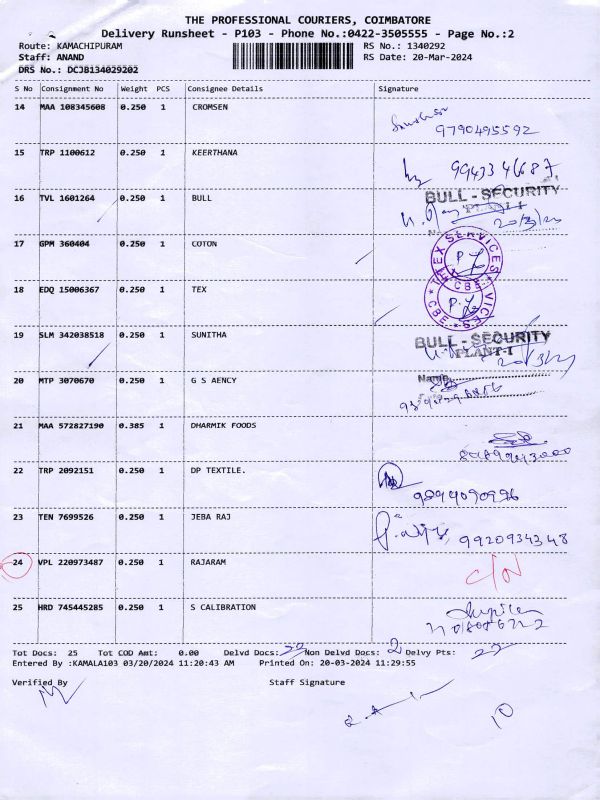 THE PROFESSIONAL COURIERS, COIMBATORE
Delivery Runsheet - P103 - Phone No.:0422-3505555 - Page No.:2
Route: KAMACHIPURAM RS No.: 1340292
Staff: ANAND RS Date: 20-Mar-2024
DRS No.: DCJB134029202
S No Consignment No Weight PCS Consignee Details Signature
14 MAA 108345608 0.250 1 CROMSEN
9790495592
15 TRP 1100612 0.250 1 KEERTHANA
9943346687
16 TVL 1601264 0.250 1 BULL BULL - SECURITY
PLANT-I
17 GPM 360404 0.250 1 COTON THEX SERVICES CBE
18 EDQ 15006367 0.250 1 TEX SERVICES CBE
19 SLM 342038518 0.250 1 SUNITHA BULL - SECURITY
PLANT-I
20 MTP 3070670 0.250 1 G S AENCY Name
21 MAA 572827190 0.385 1 DHARMIK FOODS
22 TRP 2092151 0.250 1 DP TEXTILE.
23 TEN 7699526 0.250 1 JEBA RAJ
9920934348
24 VPL 220973487 0.250 1 RAJARAM C/N
25 HRD 745445285 0.250 1 S CALIBRATION
Tot Docs: 25 Tot COD Amt: 0.00 Delvd Docs: Non Delvd Docs: 2 Delvy Pts: 22
Entered By :KAMALA103 03/20/2024 11:20:43 AM Printed On: 20-03-2024 11:29:55
Verified By Staff Signature
10